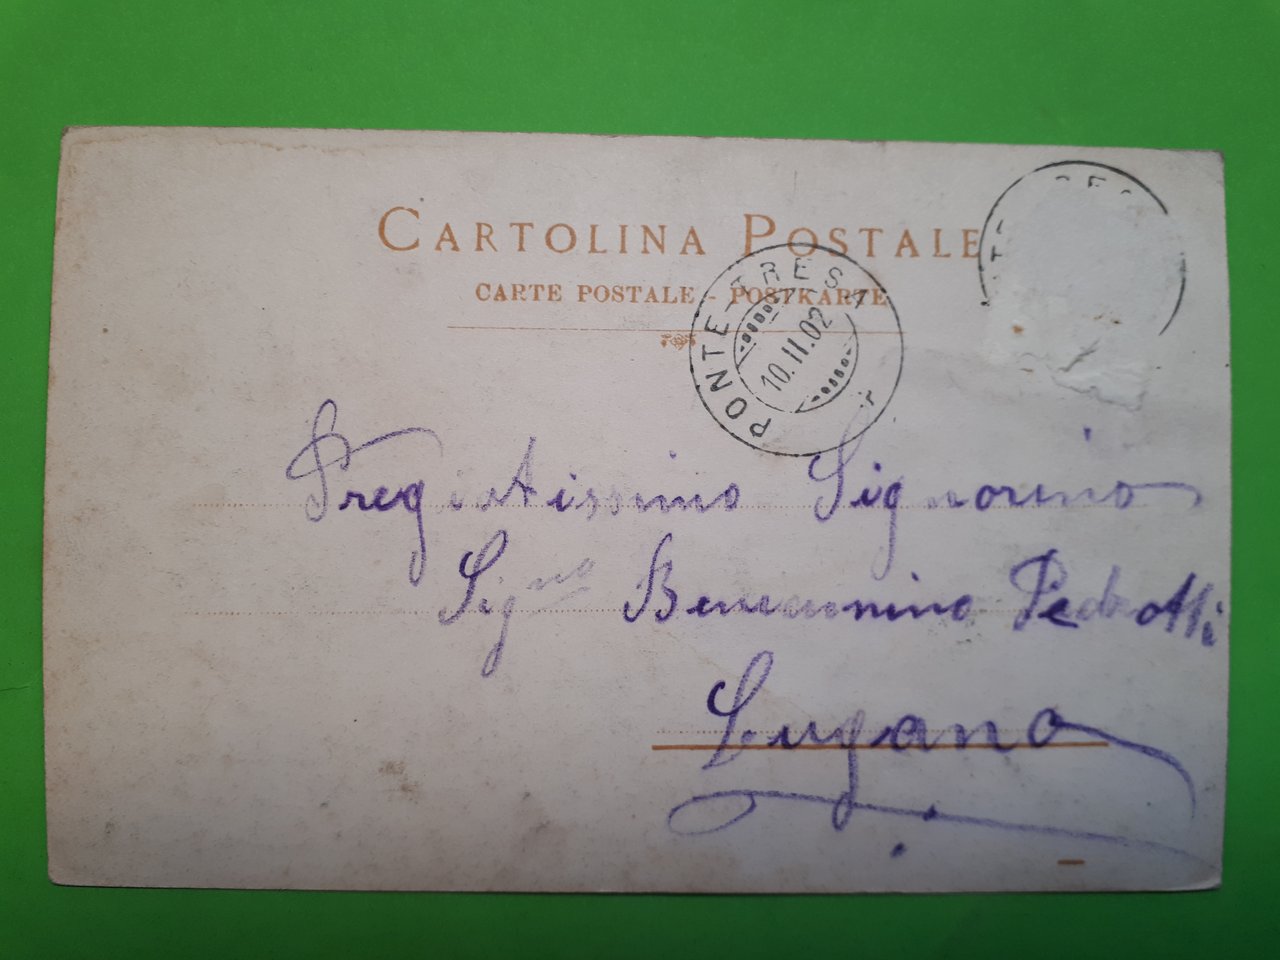 CARTOLINA POSTALE
CARTE POSTALE - POSTKARTE
PONTE-TRESA
10.II.02
Pregiatissimo Signorino
Sig.no Beniamino Pedrotti
Lugano